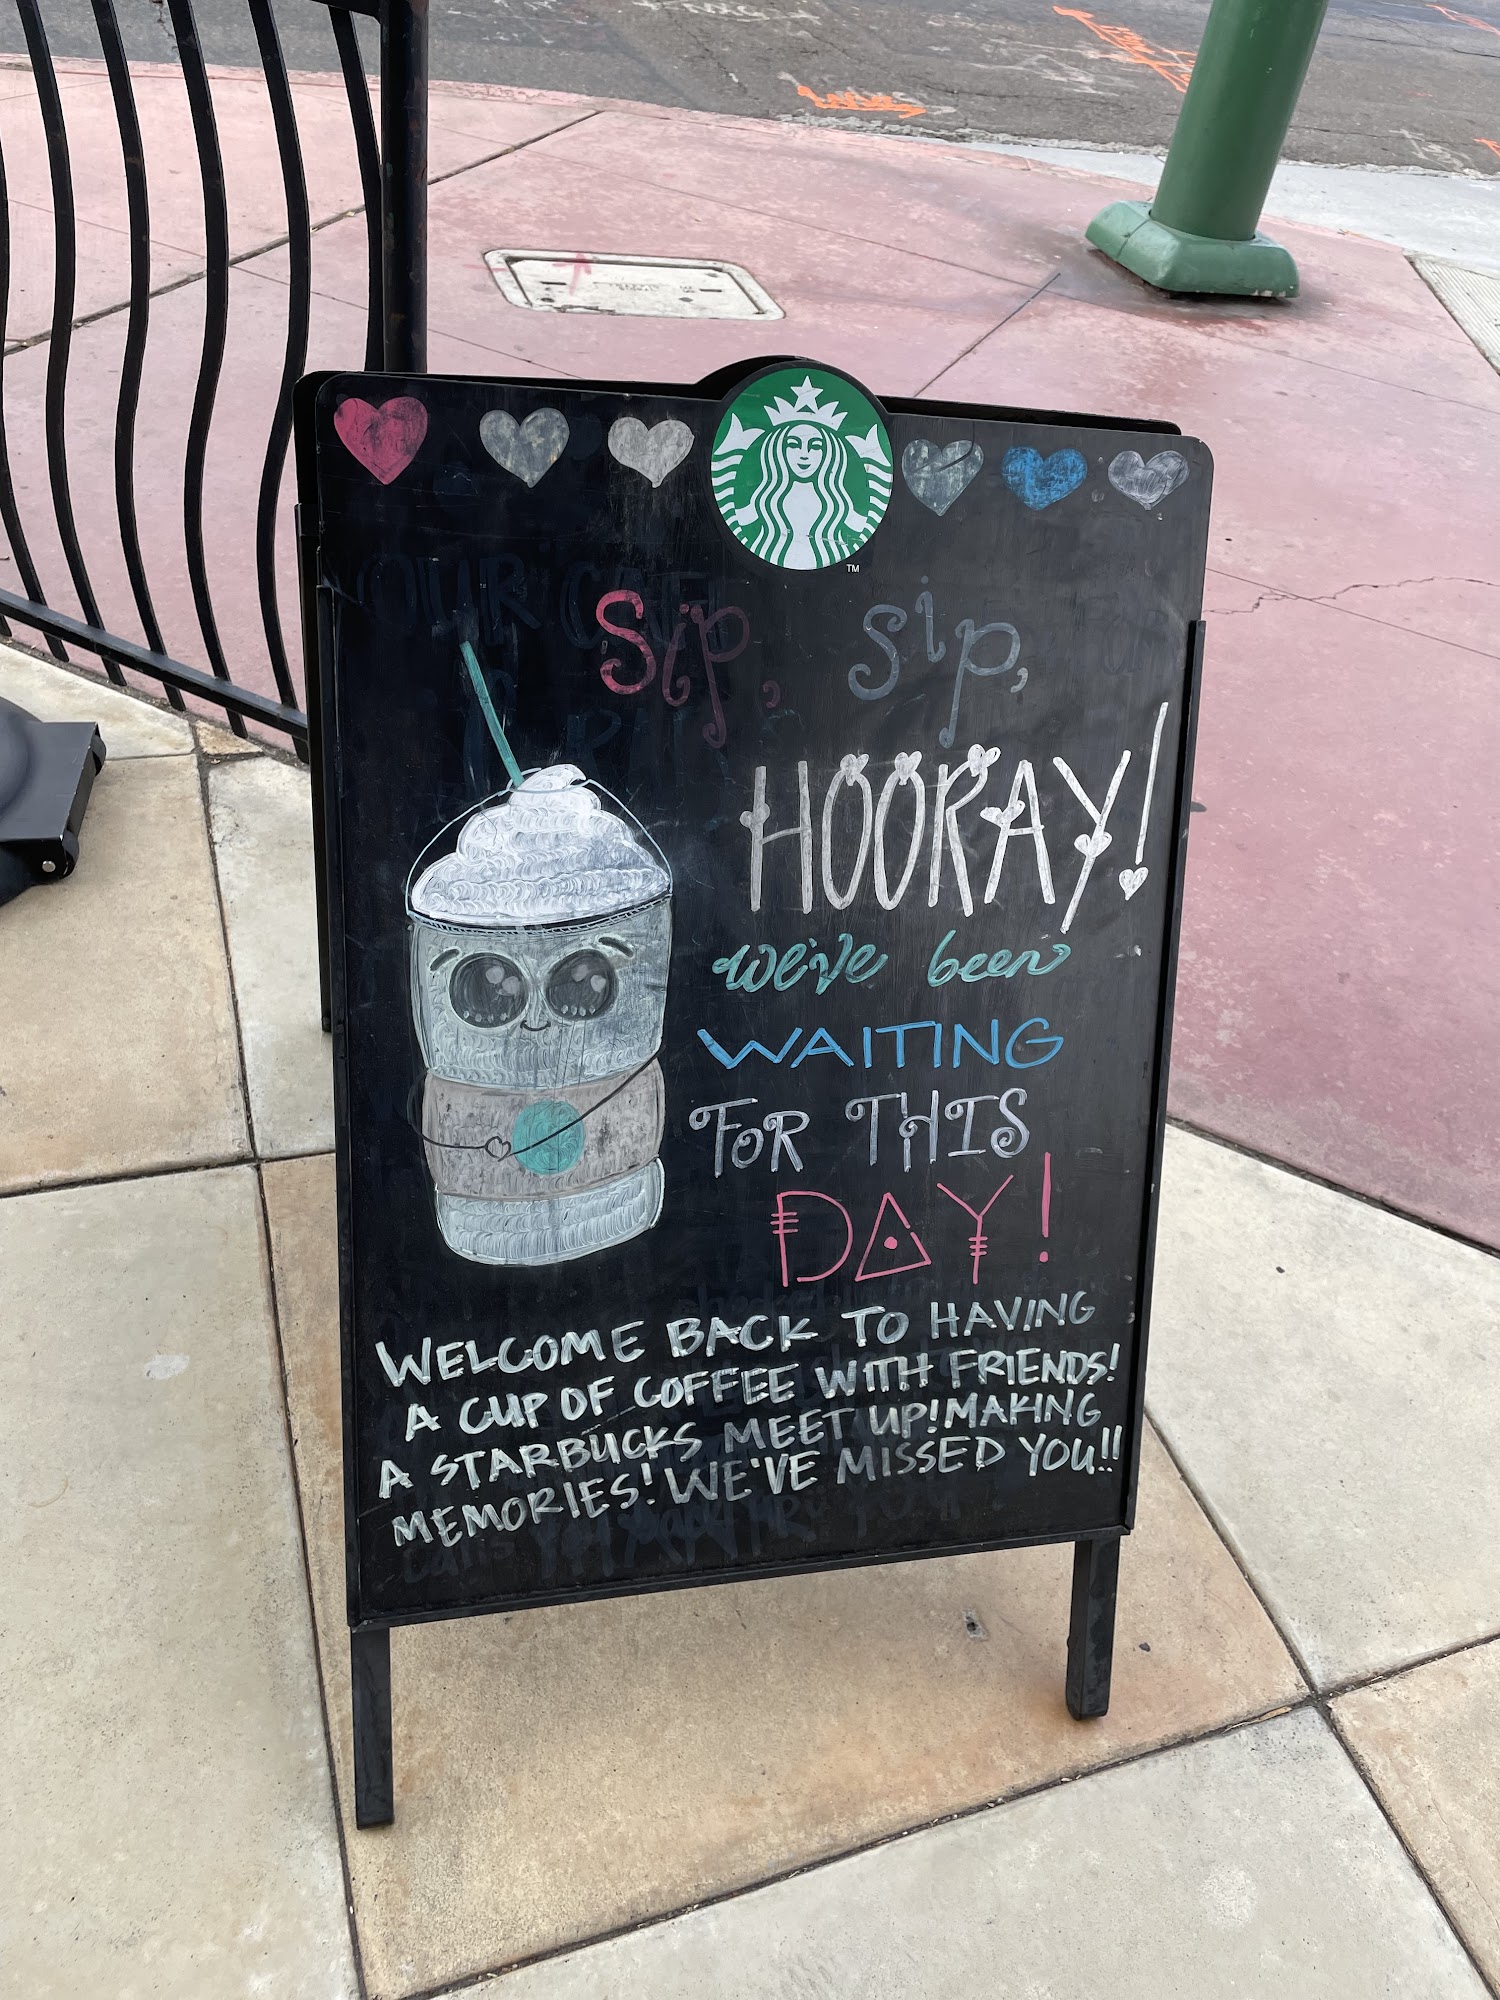 TM
Sip, sip,
HOORAY!
we've been
WAITING
FOR THIS
DAY!
WELCOME BACK TO HAVING
A CUP OF COFFEE WITH FRIENDS!
A STARBUCKS MEET UP! MAKING
MEMORIES! WE'VE MISSED YOU!!